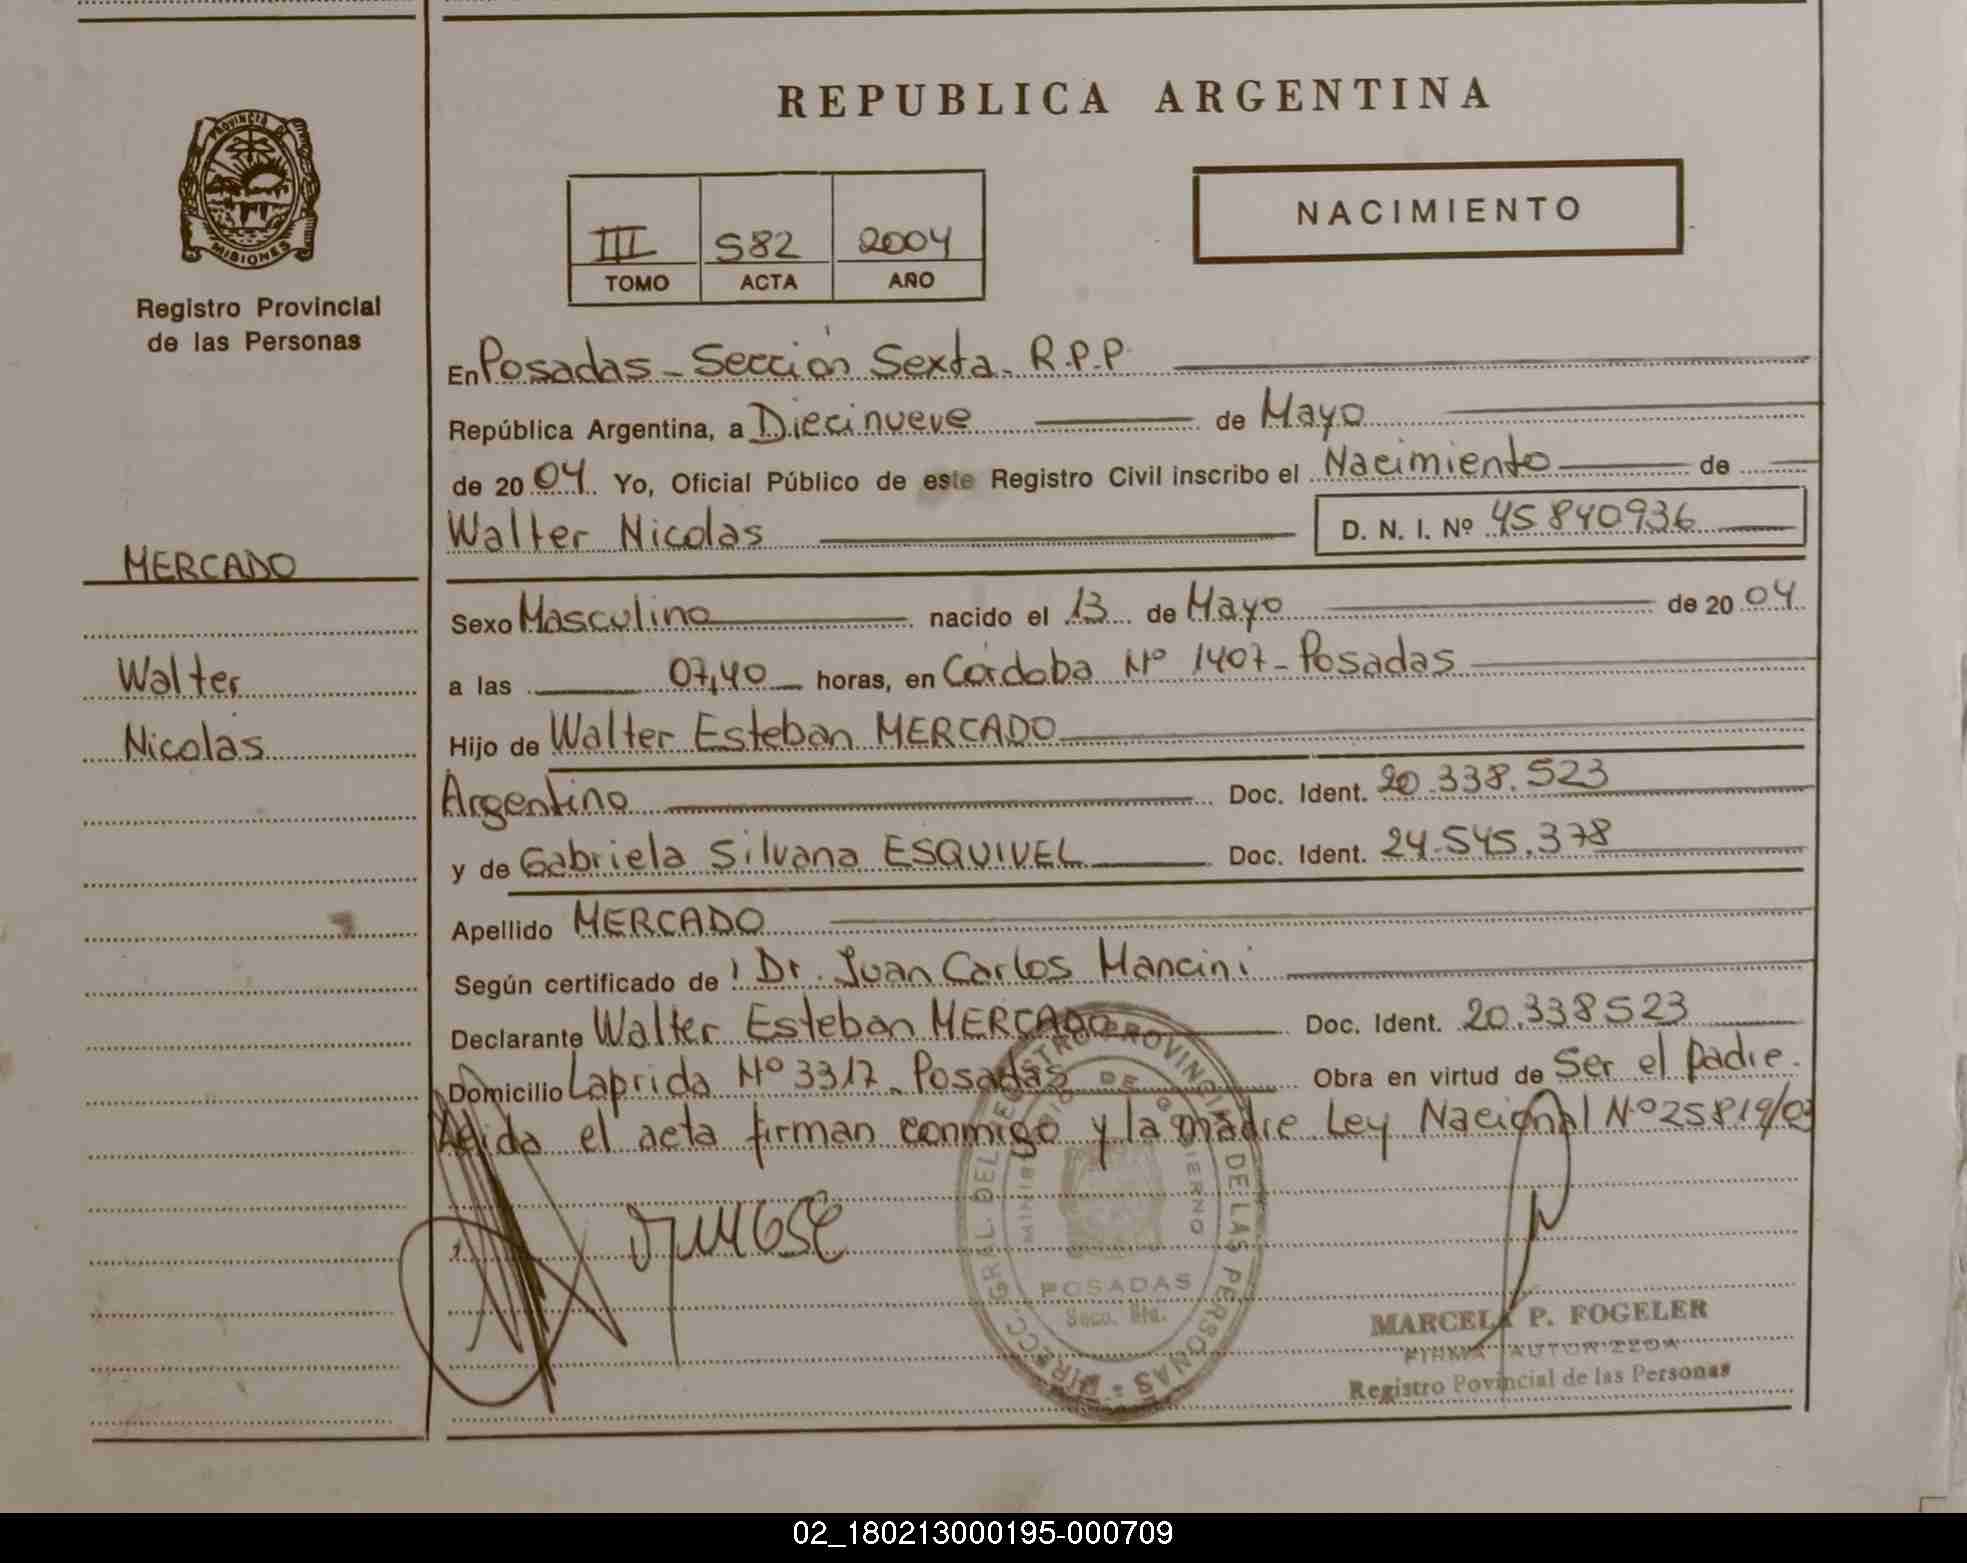 REPUBLICA ARGENTINA
PROVINCIA DE MISIONES
Registro Provincial
de las Personas
NACIMIENTO
III S82 2004
TOMO ACTA AÑO
En Posadas - Sección Sexta - R.P.P.
República Argentina, a Diecinueve de Mayo
de 2004. Yo, Oficial Público de este Registro Civil inscribo el Nacimiento de
Walter Nicolas D. N. I. Nº 45 840936
MERCADO
Walter
Nicolás
Sexo Masculino nacido el 13 de Mayo de 2004
a las 07,40 horas, en Córdoba Nº 1407 - Posadas
Hijo de Walter Esteban MERCADO
Argentino Doc. Ident. 20.338.523
y de Gabriela Silvana ESQUIVEL Doc. Ident. 24.545.378
Apellido MERCADO
Según certificado de Dr. Juan Carlos Mancini
Declarante Walter Esteban MERCADO Doc. Ident. 20.338523
Domicilio Laprida Nº 3317 - Posadas Obra en virtud de Ser el padre.
el acta firman conmigo y la madre Ley Nacional Nº 25819/03
DIRECC. GRAL. DEL REGISTRO PROVINCIAL DE LAS PERSONAS
MINISTERIO DE GOBIERNO
POSADAS
Secc. 6ta.
MARCELA P. FOGELER
FIRMA AUTORIZADA
Registro Povincial de las Personas
02_180213000195-000709